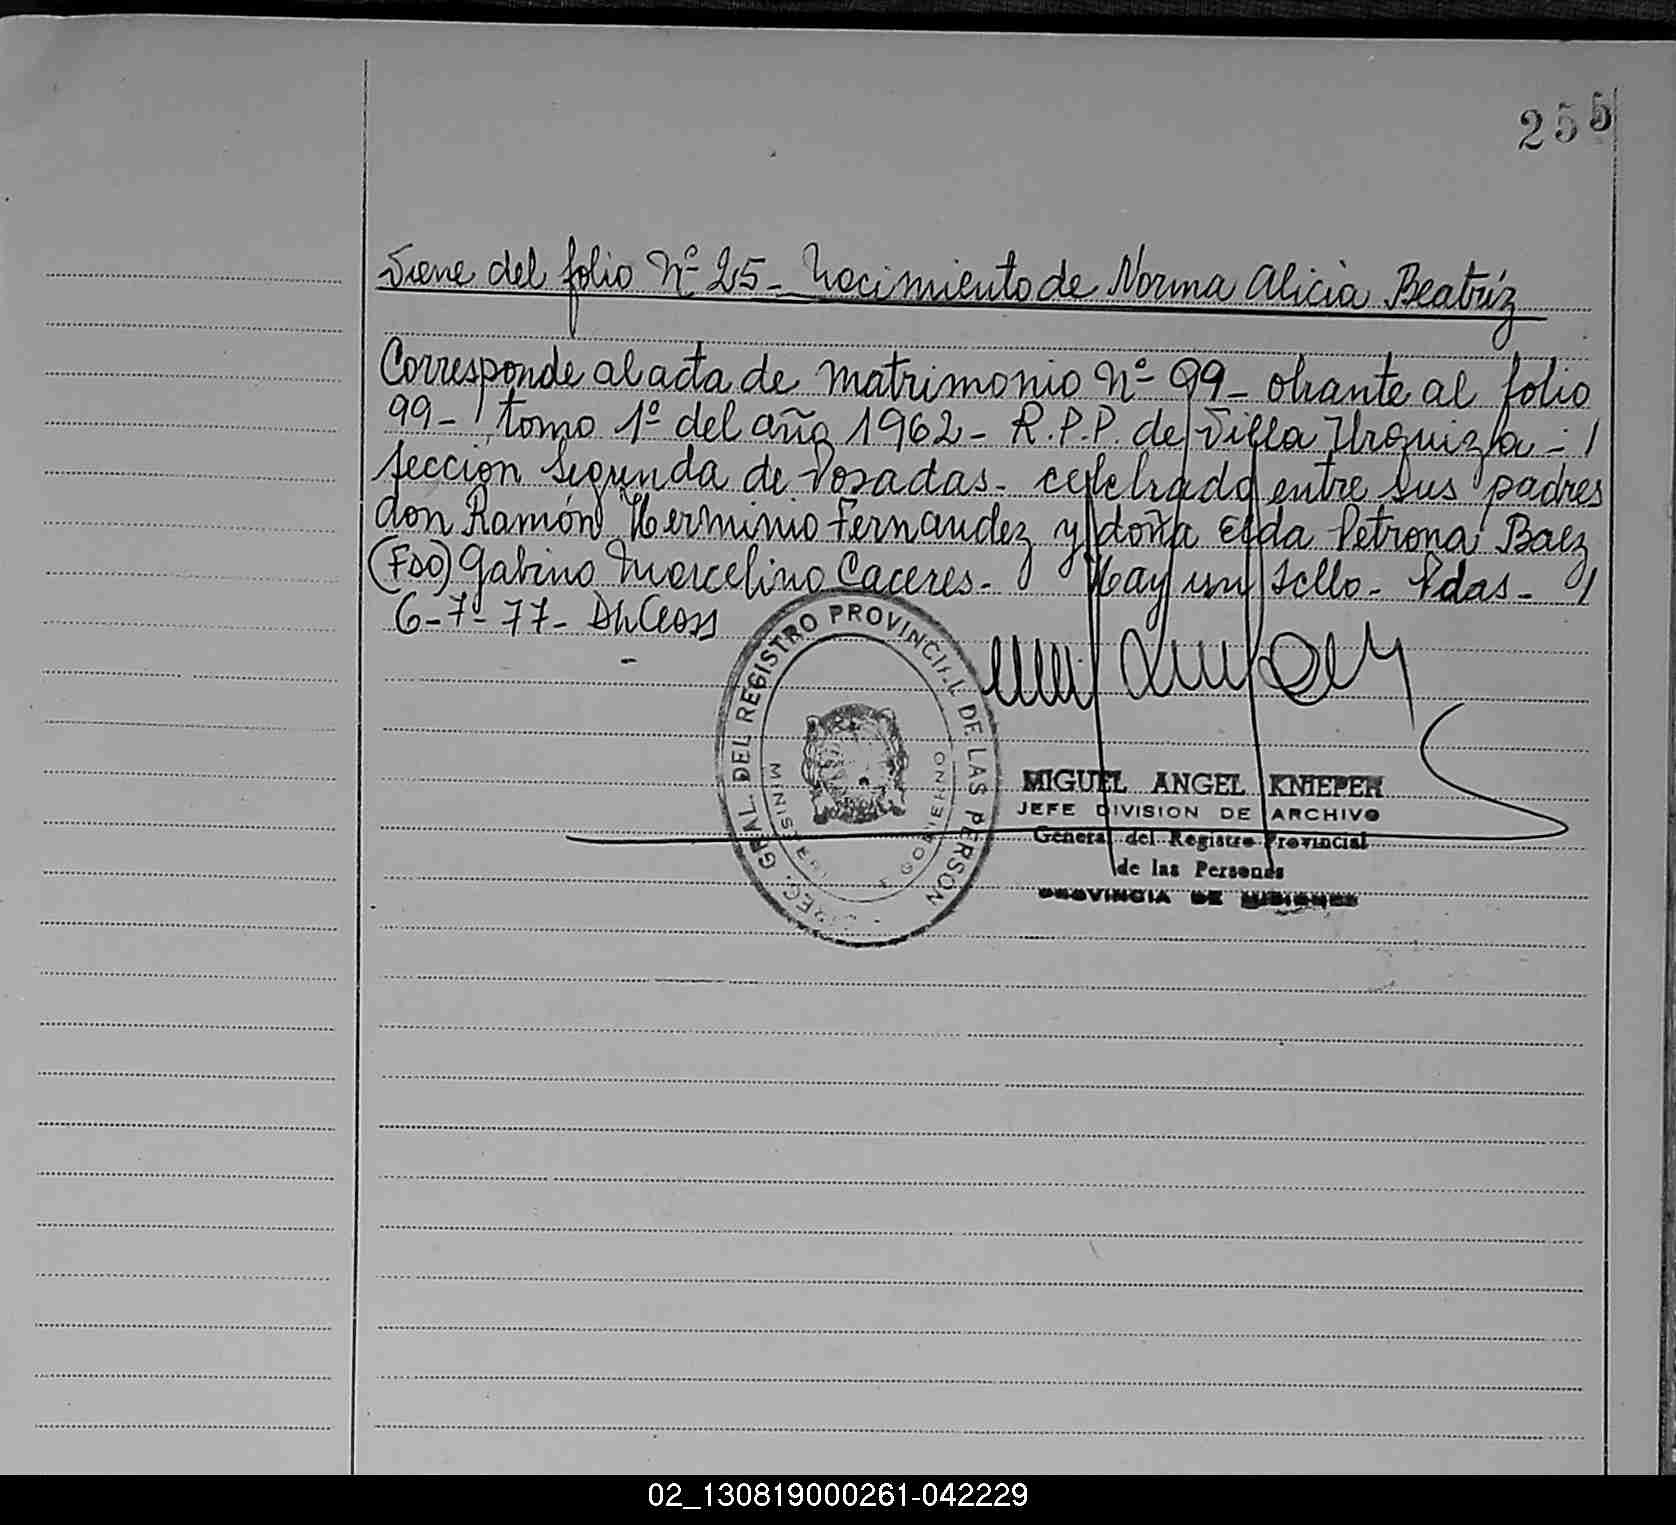 255
Viene del folio Nº 25 - Nacimiento de Norma Alicia Beatríz
Corresponde al acta de matrimonio Nº 99 - obrante al folio
99 - tomo 1º del año 1962 - R.P.P. de Villa Urquiza - /
sección segunda de Posadas - celebrado entre sus padres
don Ramón Herminio Fernandez y doña Elda Petrona Baez
(FDO) Gabino Marcelino Caceres - Hay un sello - Pdas - /
6-7-77-
DIREC. GRAL. DEL REGISTRO PROVINCIAL DE LAS PERSON
MINISTERI GOBIERNO
MIGUEL ANGEL KNIEPER
JEFE DIVISION DE ARCHIVO
General del Registro Provincial
de las Personas
PROVINCIA DE MISIONES
02_130819000261-042229